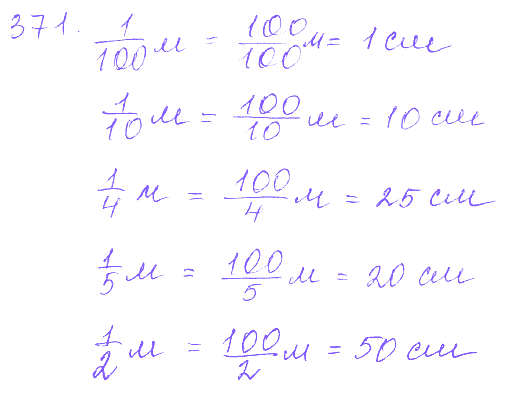 371. 1/100 м = 100/100 м = 1 см
1/10 м = 100/10 м = 10 см
1/4 м = 100/4 м = 25 см
1/5 м = 100/5 м = 20 см
1/2 м = 100/2 м = 50 см